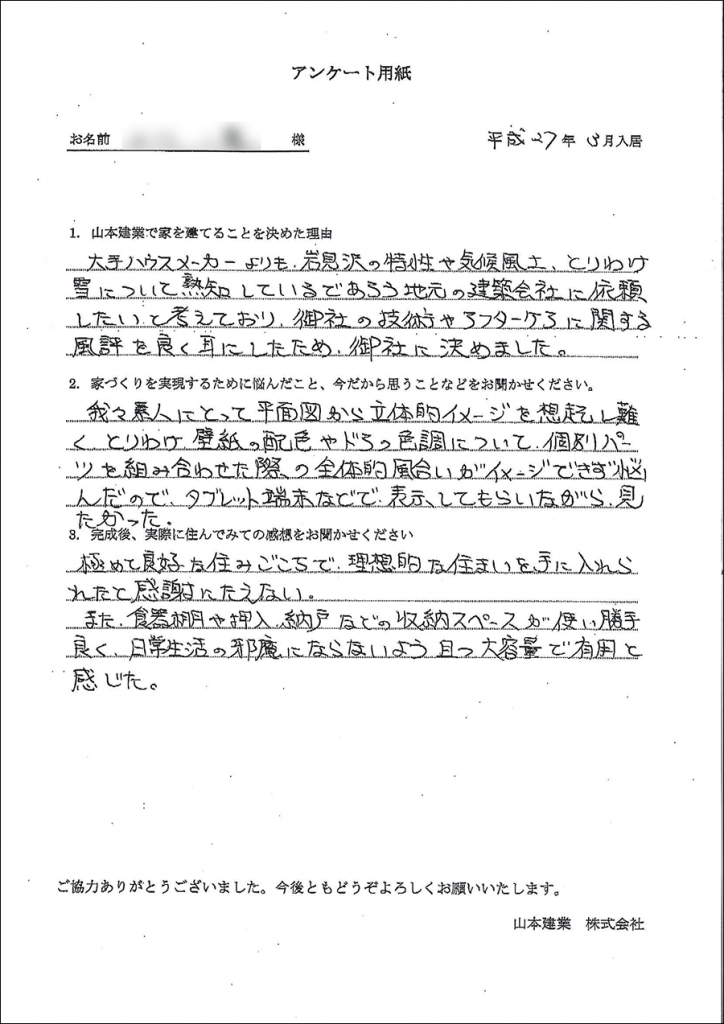 アンケート用紙
お名前 様
平成27年 3月入居
1. 山本建業で家を建てることを決めた理由
大手ハウスメーカーよりも、岩見沢の特性や気候風土、とりわけ
雪について熟知しているであろう地元の建築会社に依頼
したいと考えており、御社の技術やアフターケアに関する
風評を良く耳にしたため、御社に決めました。
2. 家づくりを実現するために悩んだこと、今だから思うことなどをお聞かせください。
我々素人にとって平面図から立体的イメージを想起し難
く、とりわけ壁紙の配色やドアの色調について、個別パー
ツを組み合わせた際の全体的風合いがイメージできず悩
んだので、タブレット端末などで、表示してもらいながら、見
たかった。
3. 完成後、実際に住んでみての感想をお聞かせください
極めて良好な住みごこちで、理想的な住まいを手に入れら
れたと感謝にたえない。
また、食器棚や押入、納戸などの収納スペースが使い勝手
良く、日常生活の邪魔にならないよう且つ大容量で有用と
感じた。
ご協力ありがとうございました。今後ともどうぞよろしくお願いいたします。
山本建業 株式会社